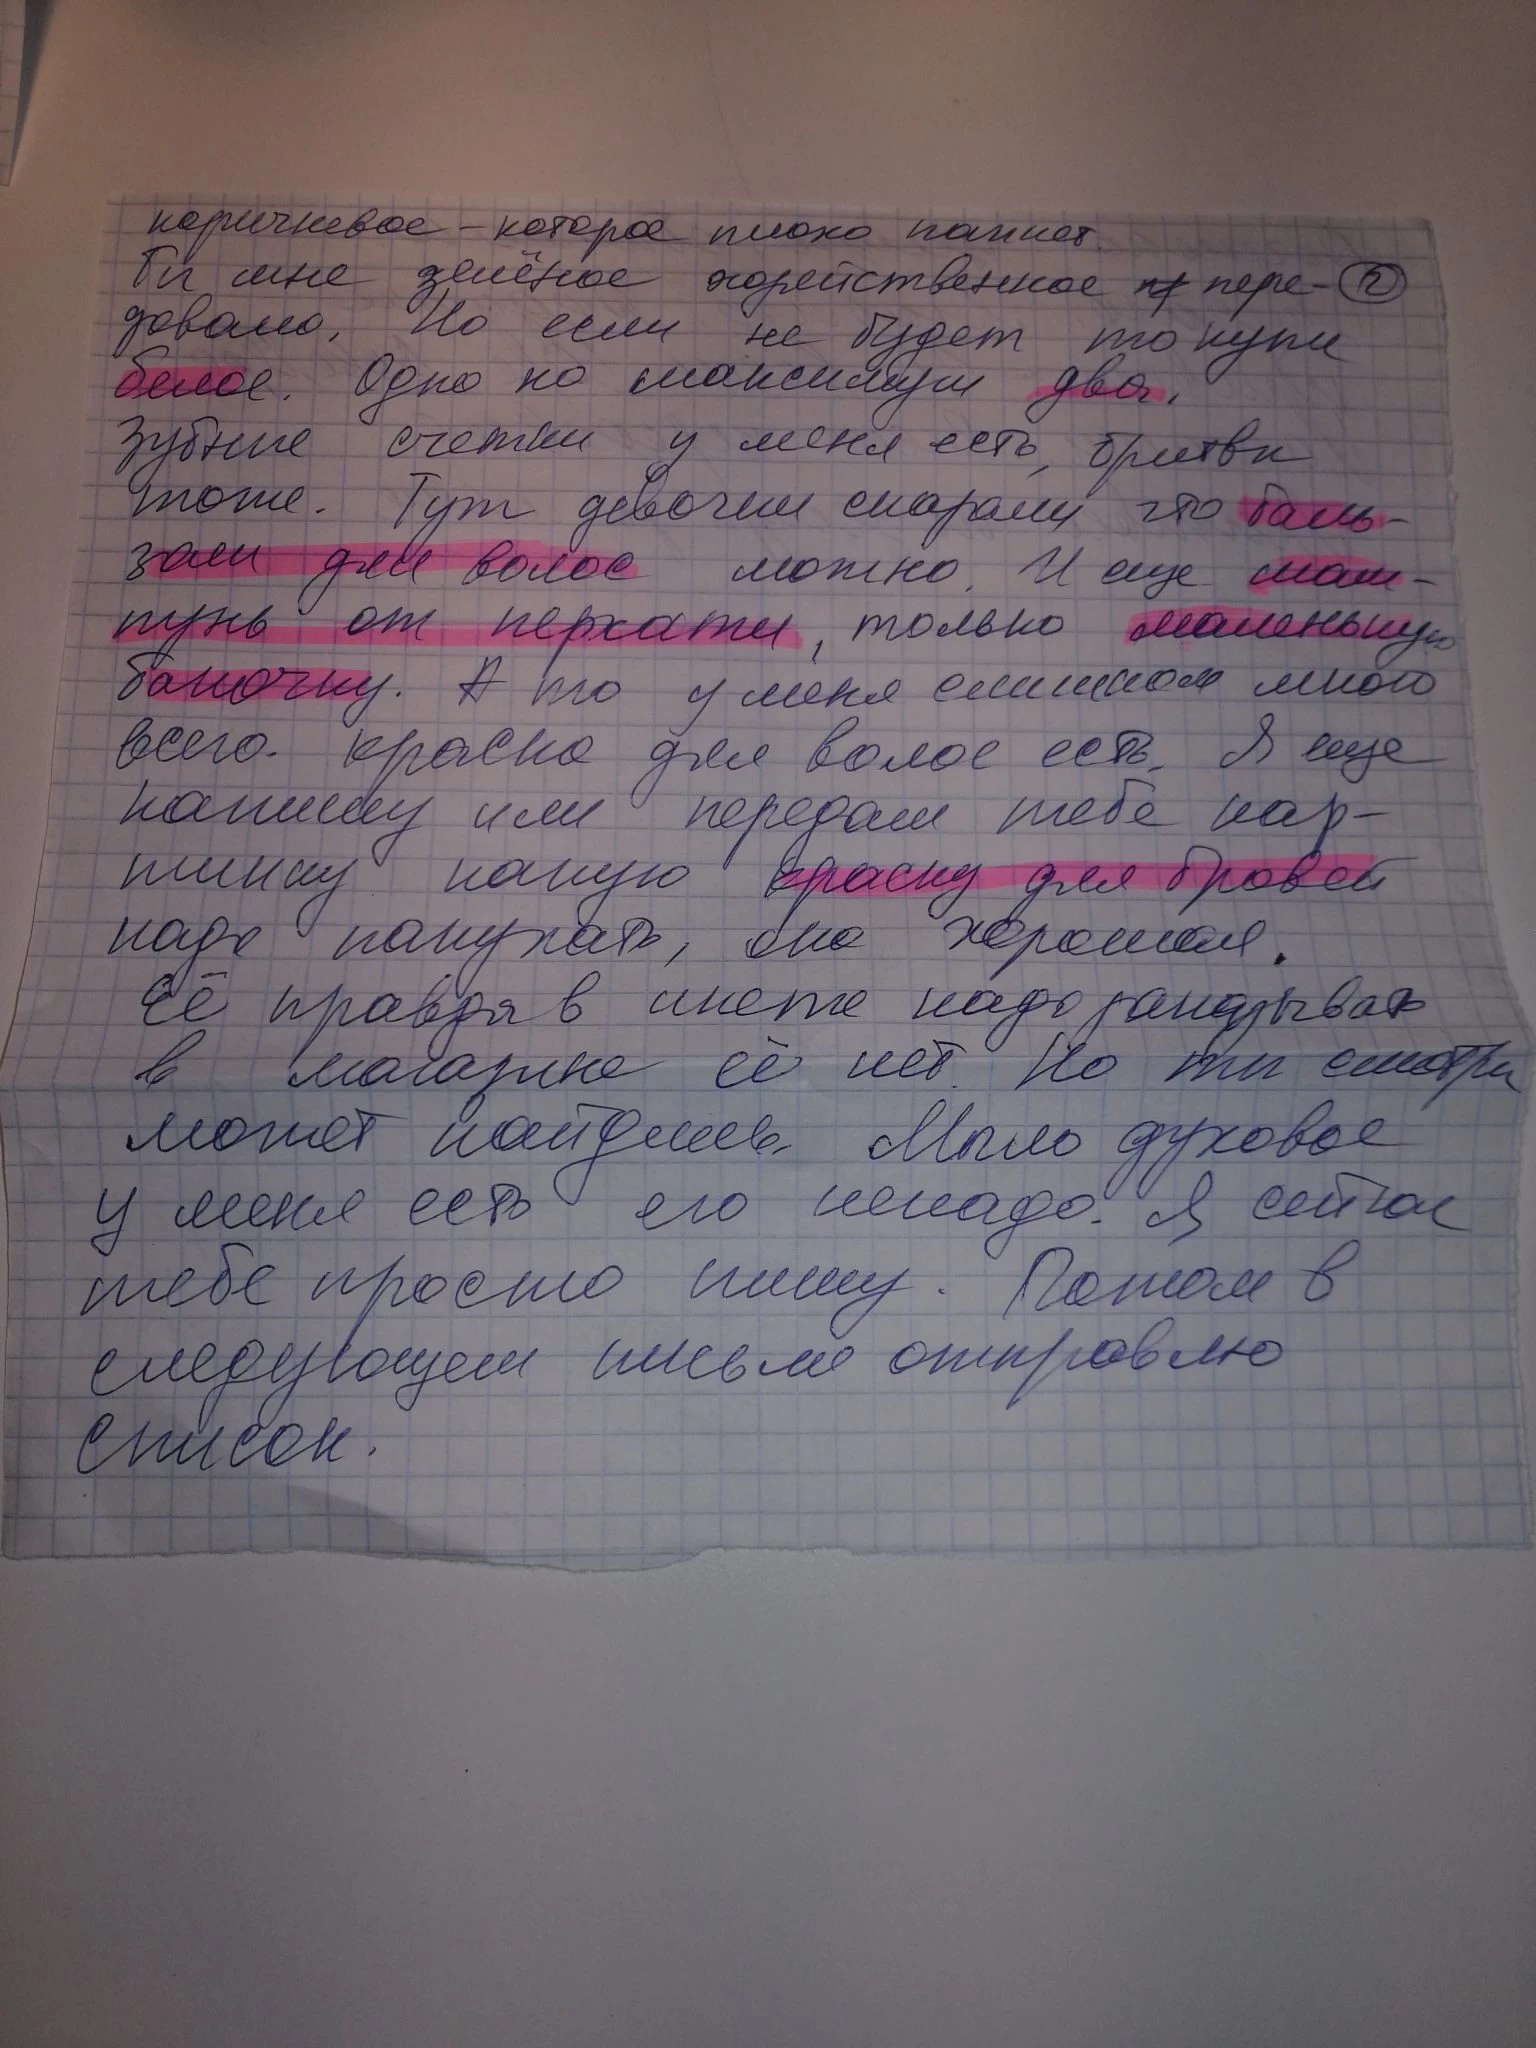 коричневое - которое плохо пахнет.
Ты мне зелёное хозяйственное пере- 2
довала. Но если не будет то купи
белое. Одно но максимум два.
Зубные счетки у меня есть, бритвы
тоже. Тут девочки сказали что баль-
зам для волос можно. И еще шам-
пунь от перхоти, только маленькую
баночку. А то у меня слишком много
всего. Краска для волос есть. Я еще
напишу или передам тебе кар-
тинку какую краску для бровей
надо покупать, она хорошая.
Её правда в инете надо заказывать
в магазине её нет. Но ты смотри
может найдешь. Мыло духовое
у меня есть его ненадо. Я сейчас
тебе просто пишу. Потом в
следующем письме отправлю
список.